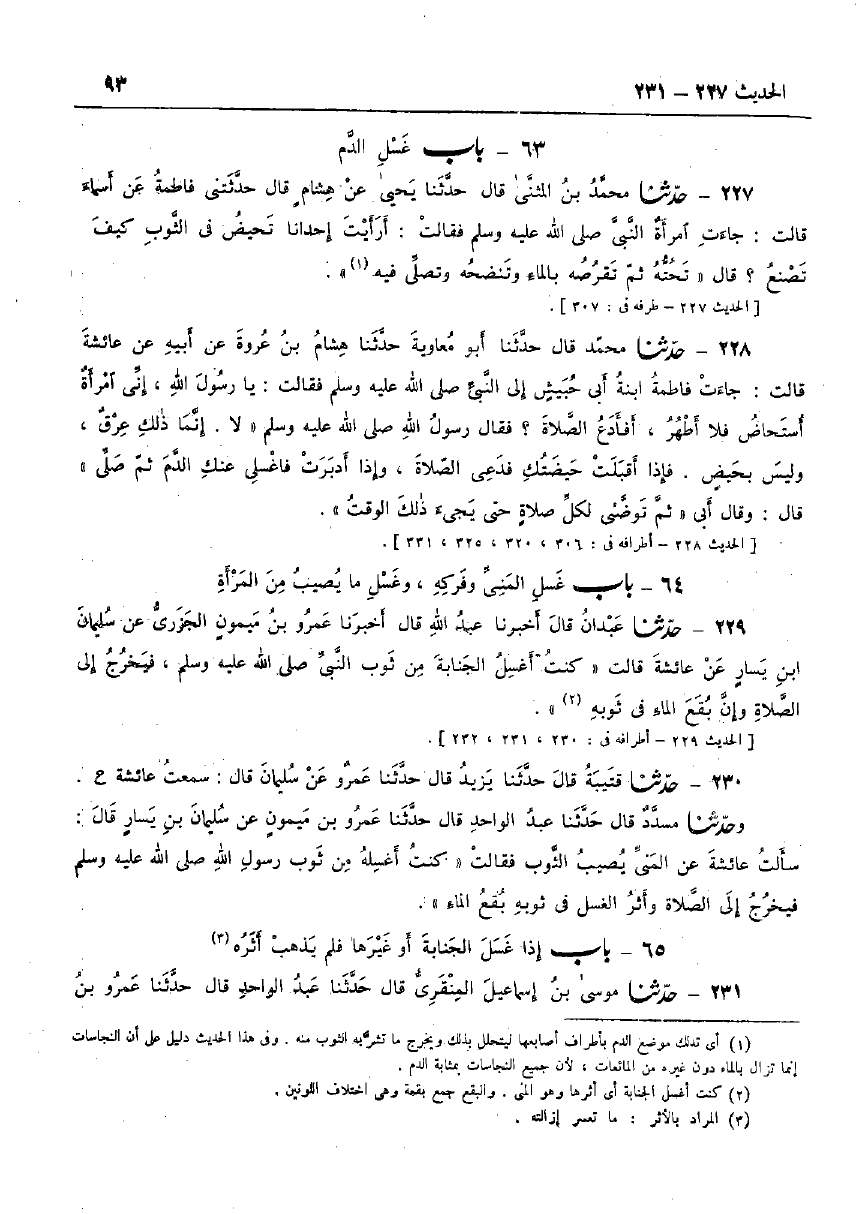 الحديث ٢٢٧ – ٢٣١
٩٣
٦٣ – باب غَسْلِ الدَّم
٢٢٧ – حدّثنا محمَّدُ بنُ المثنَّىٰ قال حدَّثَنا يَحيىٰ عنْ هِشامٍ قال حدَّثَتنى فاطمةُ عَن أَسماءَ
قالت : جاءَتِ ٱمرأةٌ النَّبيَّ صلى الله عليه وسلم فقالتْ : أَرَأَيْتَ إحدانا تَحيضُ فى الثَّوبِ كيفَ
تَصْنعُ ؟ قال « تَحُتُّهُ ثمّ تَقرُصُه بالماءِ وتَنضحُه وتصلِّى فيه (١) » .
[ الحديث ٢٢٧ – طرفه فى : ٣٠٧ ] .
٢٢٨ – حدّثنا محمّد قال حدَّثَنا أبو مُعاويةَ حدَّثَنا هِشامُ بنُ عُروةَ عن أبيهِ عن عائشةَ
قالت : جاءَتْ فاطمةُ ابنةُ أبى حُبَيشٍ إلى النَّبيِّ صلى الله عليه وسلم فقالت : يا رسُولَ اللهِ ، إنِّى ٱمْرأةٌ
أُستَحاضُ فلا أَطْهُرُ ، أفأدَعُ الصَّلاةَ ؟ فقال رسولُ اللهِ صلى الله عليه وسلم « لا . إنَّمَا ذٰلكِ عِرْقٌ ،
وليسَ بحَيضٍ . فإذا أقبَلَتْ حَيضَتُكِ فدَعِى الصّلاةَ ، وإذا أدبَرَتْ فاغسْلِى عنكِ الدَّمَ ثمّ صَلِّى »
قال : وقال أبى « ثمَّ تَوضَّئى لكلِّ صلاةٍ حتى يَجىءَ ذٰلكَ الوقتُ » .
[ الحديث ٢٢٨ – أطرافه فى : ٣٠٦ ، ٣٢٠ ، ٣٢٥ ، ٣٣١ ] .
٦٤ – باب غَسلِ المَنِىِّ وفَركِهِ ، وغَسْلِ ما يُصيبُ مِنَ المَرْأَةِ
٢٢٩ – حدّثنا عَبْدانُ قالَ أخبرنا عبدُ اللهِ قال أخبرَنا عَمرُو بنُ مَيمونٍ الجَزَرىُّ عن سُليمانَ
ابنِ يَسارٍ عَنْ عائشةَ قالت « كنتُ أغسِلُ الجَنابةَ مِن ثَوب النَّبيِّ صلى الله عليه وسلم ، فيَخرُجُ إلى
الصَّلاةِ وإنَّ بُقَعَ الماءِ فى ثَوبهِ (٢) » .
[ الحديث ٢٢٩ – أطرافه فى : ٢٣٠ ، ٢٣١ ، ٢٣٢ ] .
٢٣٠ – حدّثنا قتيبةُ قالَ حدَّثَنا يَزيدُ قال حدَّثَنا عَمرٌو عَنْ سُليمانَ قال : سمعتُ عائشة ح .
وحدّثنا مسدَّدٌ قال حَدَّثَنا عبدُ الواحدِ قال حدَّثَنا عَمرُو بن مَيمونٍ عن سُليمانَ بنِ يَسارٍ قَالَ :
سألتُ عائشةَ عن المَنىِّ يُصيبُ الثَّوب فقالتْ « كنتُ أغسِلهُ مِن ثَوب رسولِ اللهِ صلى الله عليه وسلم
فيخرُجُ إلَى الصَّلاة وأثرُ الغسل فى ثوبهِ بُقَعُ الماءِ » .
٦٥ – باب إذا غَسَلَ الجَنابةَ أو غَيْرَها فلم يَذهبْ أثَرُه (٣)
٢٣١ – حدّثنا موسىٰ بنُ إسماعيلَ المِنْقَرىُّ قال حَدَّثَنا عَبدُ الواحدِ قال حدَّثَنا عَمرُو بنُ
(١) أى تدلك موضع الدم بأطراف أصابعها ليتحلل بذلك ويخرج ما تشربه الثوب منه . وفى هذا الحديث دليل على أن النجاسات
إنما تزال بالماء دون غيره من المائعات ، لأن جميع النجاسات بمثابة الدم .
(٢) كنت أغسل الجنابة أى أثرها وهو المنى . والبقع جمع بقعة وهى اختلاف اللونين .
(٣) المراد بالأثر : ما تعسر إزالته .